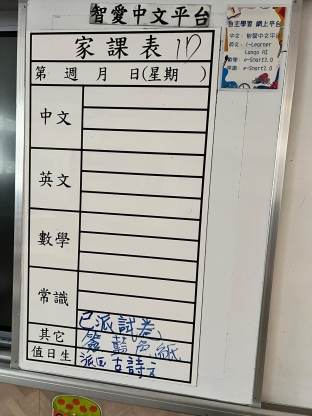 智愛中文平台
家課表 1D
第 週 月 日(星期 )
中文
英文
數學
常識
已派試卷、
其它 簽藍色紙
值日生 派回古詩文
自主學習 網上平台
中文: 智愛中文平台
英文: i-Learner
Lungo AI
數學: e-Smart2.0
常識: e-Smart2.0